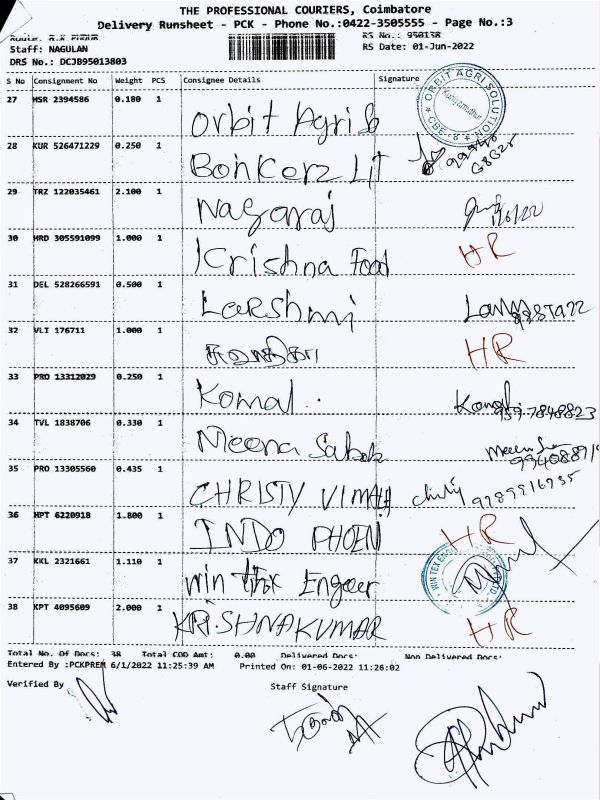 THE PROFESSIONAL COURIERS, Coimbatore
Delivery Runsheet - PCK - Phone No.:0422-3505555 - Page No.:3
RS No.: 950138
Staff: NAGULAN RS Date: 01-Jun-2022
DRS No.: DCJB95013803
S No Consignment No Weight PCS Consignee Details Signature
27 MSR 2394586 0.180 1 Orbit Agri S
ORBIT AGRI SOLUTION CBE-8 Kuniyamuthur
28 KUR 526471229 0.250 1 Bonkerz Lit
29 TRZ 122035461 2.100 1 Nagaraj 1/6/22
30 MRD 305591099 1.000 1 Krishna Food HR
31 DEL 528266591 0.500 1 Lakshmi
32 VLI 176711 1.000 1 HR
33 PRO 13312029 0.250 1 Komal 9597848823
34 TVL 1838706 0.330 1 Meena
35 PRO 13305560 0.435 1 CHRISTY VIMALA
36 HPT 6220918 1.800 1 INDO PHOEN HR
37 KKL 2321661 1.110 1 win tex Engeer
38 KPT 4095609 2.000 1 KRISHNAKUMAR HR
Total No. Of Docs: 38 Total COD Amt: 0.00 Delivered Docs: Non Delivered Docs:
Entered By :PCKPREM 6/1/2022 11:25:39 AM Printed On: 01-06-2022 11:26:02
Verified By Staff Signature